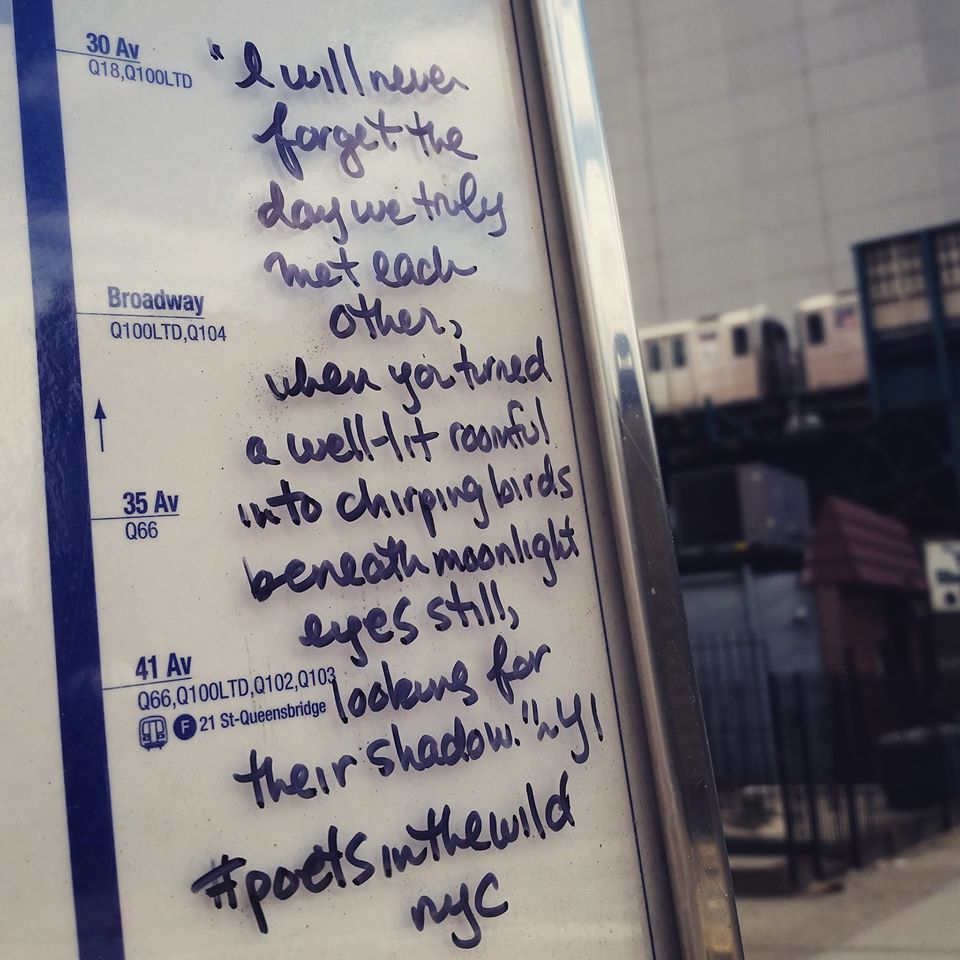 30 Av
Q18,Q100LTD
Broadway
Q100LTD,Q104
35 Av
Q66
41 Av
Q66,Q100LTD,Q102,Q103
F 21 St-Queensbridge
"I will never
forget the
day we truly
met each
other,
when you turned
a well-lit roomful
into chirping birds
beneath moonlight
eyes still,
looking for
their shadow." ~ Y!
#poetsinthewild
nyC